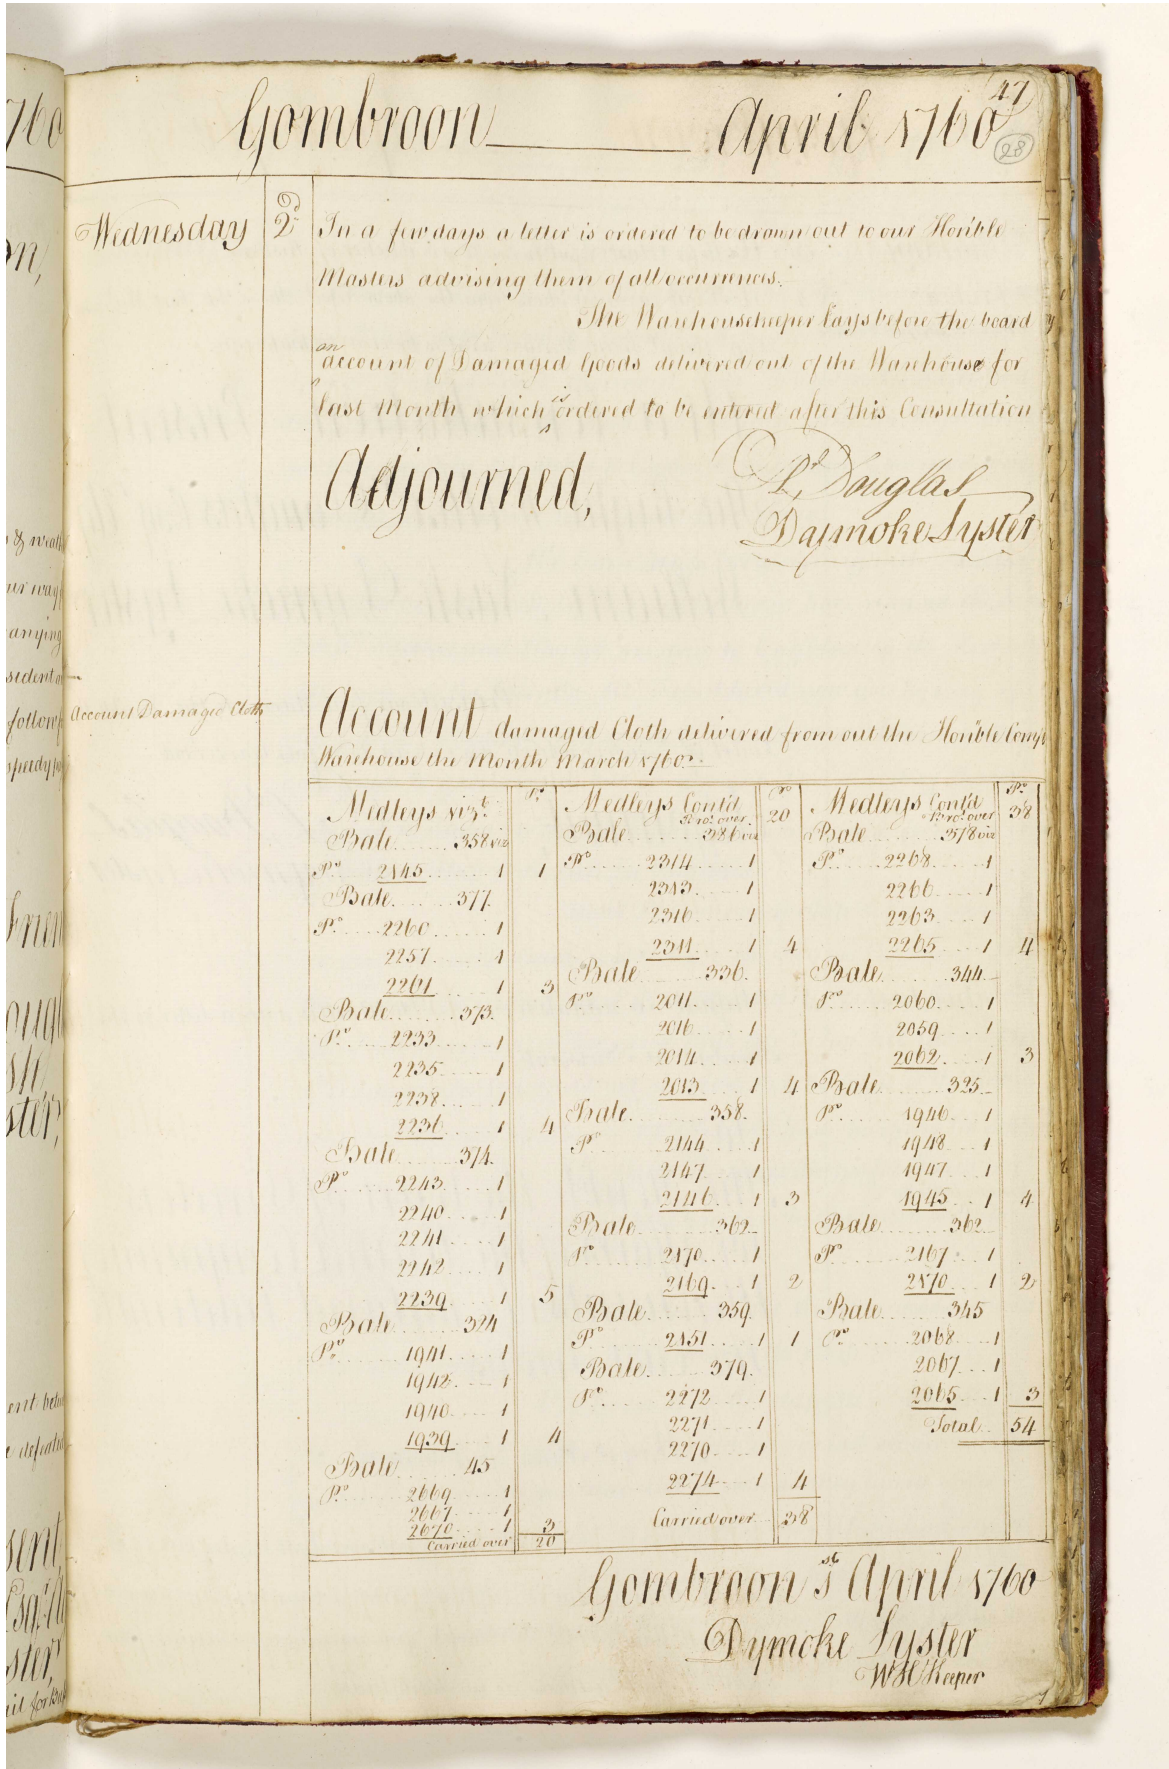 47
Gombroon April 1760
28
Wednesday 2d In a few days a letter is ordered to be drawn out to our Honble
Masters advising them of all occurrences.
The Warehousekeeper lays before the board
an
account of Damaged Goods delivered out of the Warehouse for
last Month which is ordered to be entered after this Consultation
Adjourned,
Douglas
Dymoke Lyster
Account Damaged Cloth
Account damaged Cloth delivered from out the Honble Compys
Warehouse the Month March 1760.
Medleys vizt. Ps.
Bale 358 viz
Ps. 2145 1 1
Bale 377.
Ps. 2260 1
2257 1
2261 1 3
Bale 373.
Ps. 2233 1
2235 1
2238 1
2236 1 4
Bale 374.
Ps. 2243 1
2240 1
2241 1
2242 1
2239 1 5
Bale 324
Ps. 1941 1
1942 1
1940 1
1939 1 4
Bale 45
Ps. 2669 1
2667 1
2670 1 3
Carried over 20
Medleys Contd Ps.
Bro't over 20
Bale 386 viz
Ps. 2314 1
2313 1
2316 1
2311 1 4
Bale 336.
Ps. 2011 1
2016 1
2014 1
2013 1 4
Bale 358.
Ps. 2144 1
2147 1
2146 1 3
Bale 362
Ps. 2170 1
2169 1 2
Bale 359.
Ps. 2151 1 1
Bale 379.
Ps. 2272 1
2271 1
2270 1
2274 1 4
Carried over 38
Medleys Contd Ps.
Bro't over 38
Bale 378 viz
Ps. 2268 1
2266 1
2263 1
2265 1 4
Bale 344
Ps. 2060 1
2059 1
2062 1 3
Bale 325
Ps. 1946 1
1948 1
1947 1
1945 1 4
Bale 362
Ps. 2167 1
2170 1 2
Bale 345
Ps. 2068 1
2067 1
2065 1 3
Total 54
Gombroon 1st April 1760
Dymoke Lyster
WH Keeper